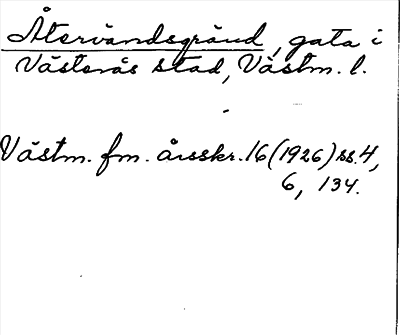 Återvändsgränd, gata i
Västerås stad, Västm. l.
Västm. fm. årsskr. 16 (1926) ss. 4,
6, 134.